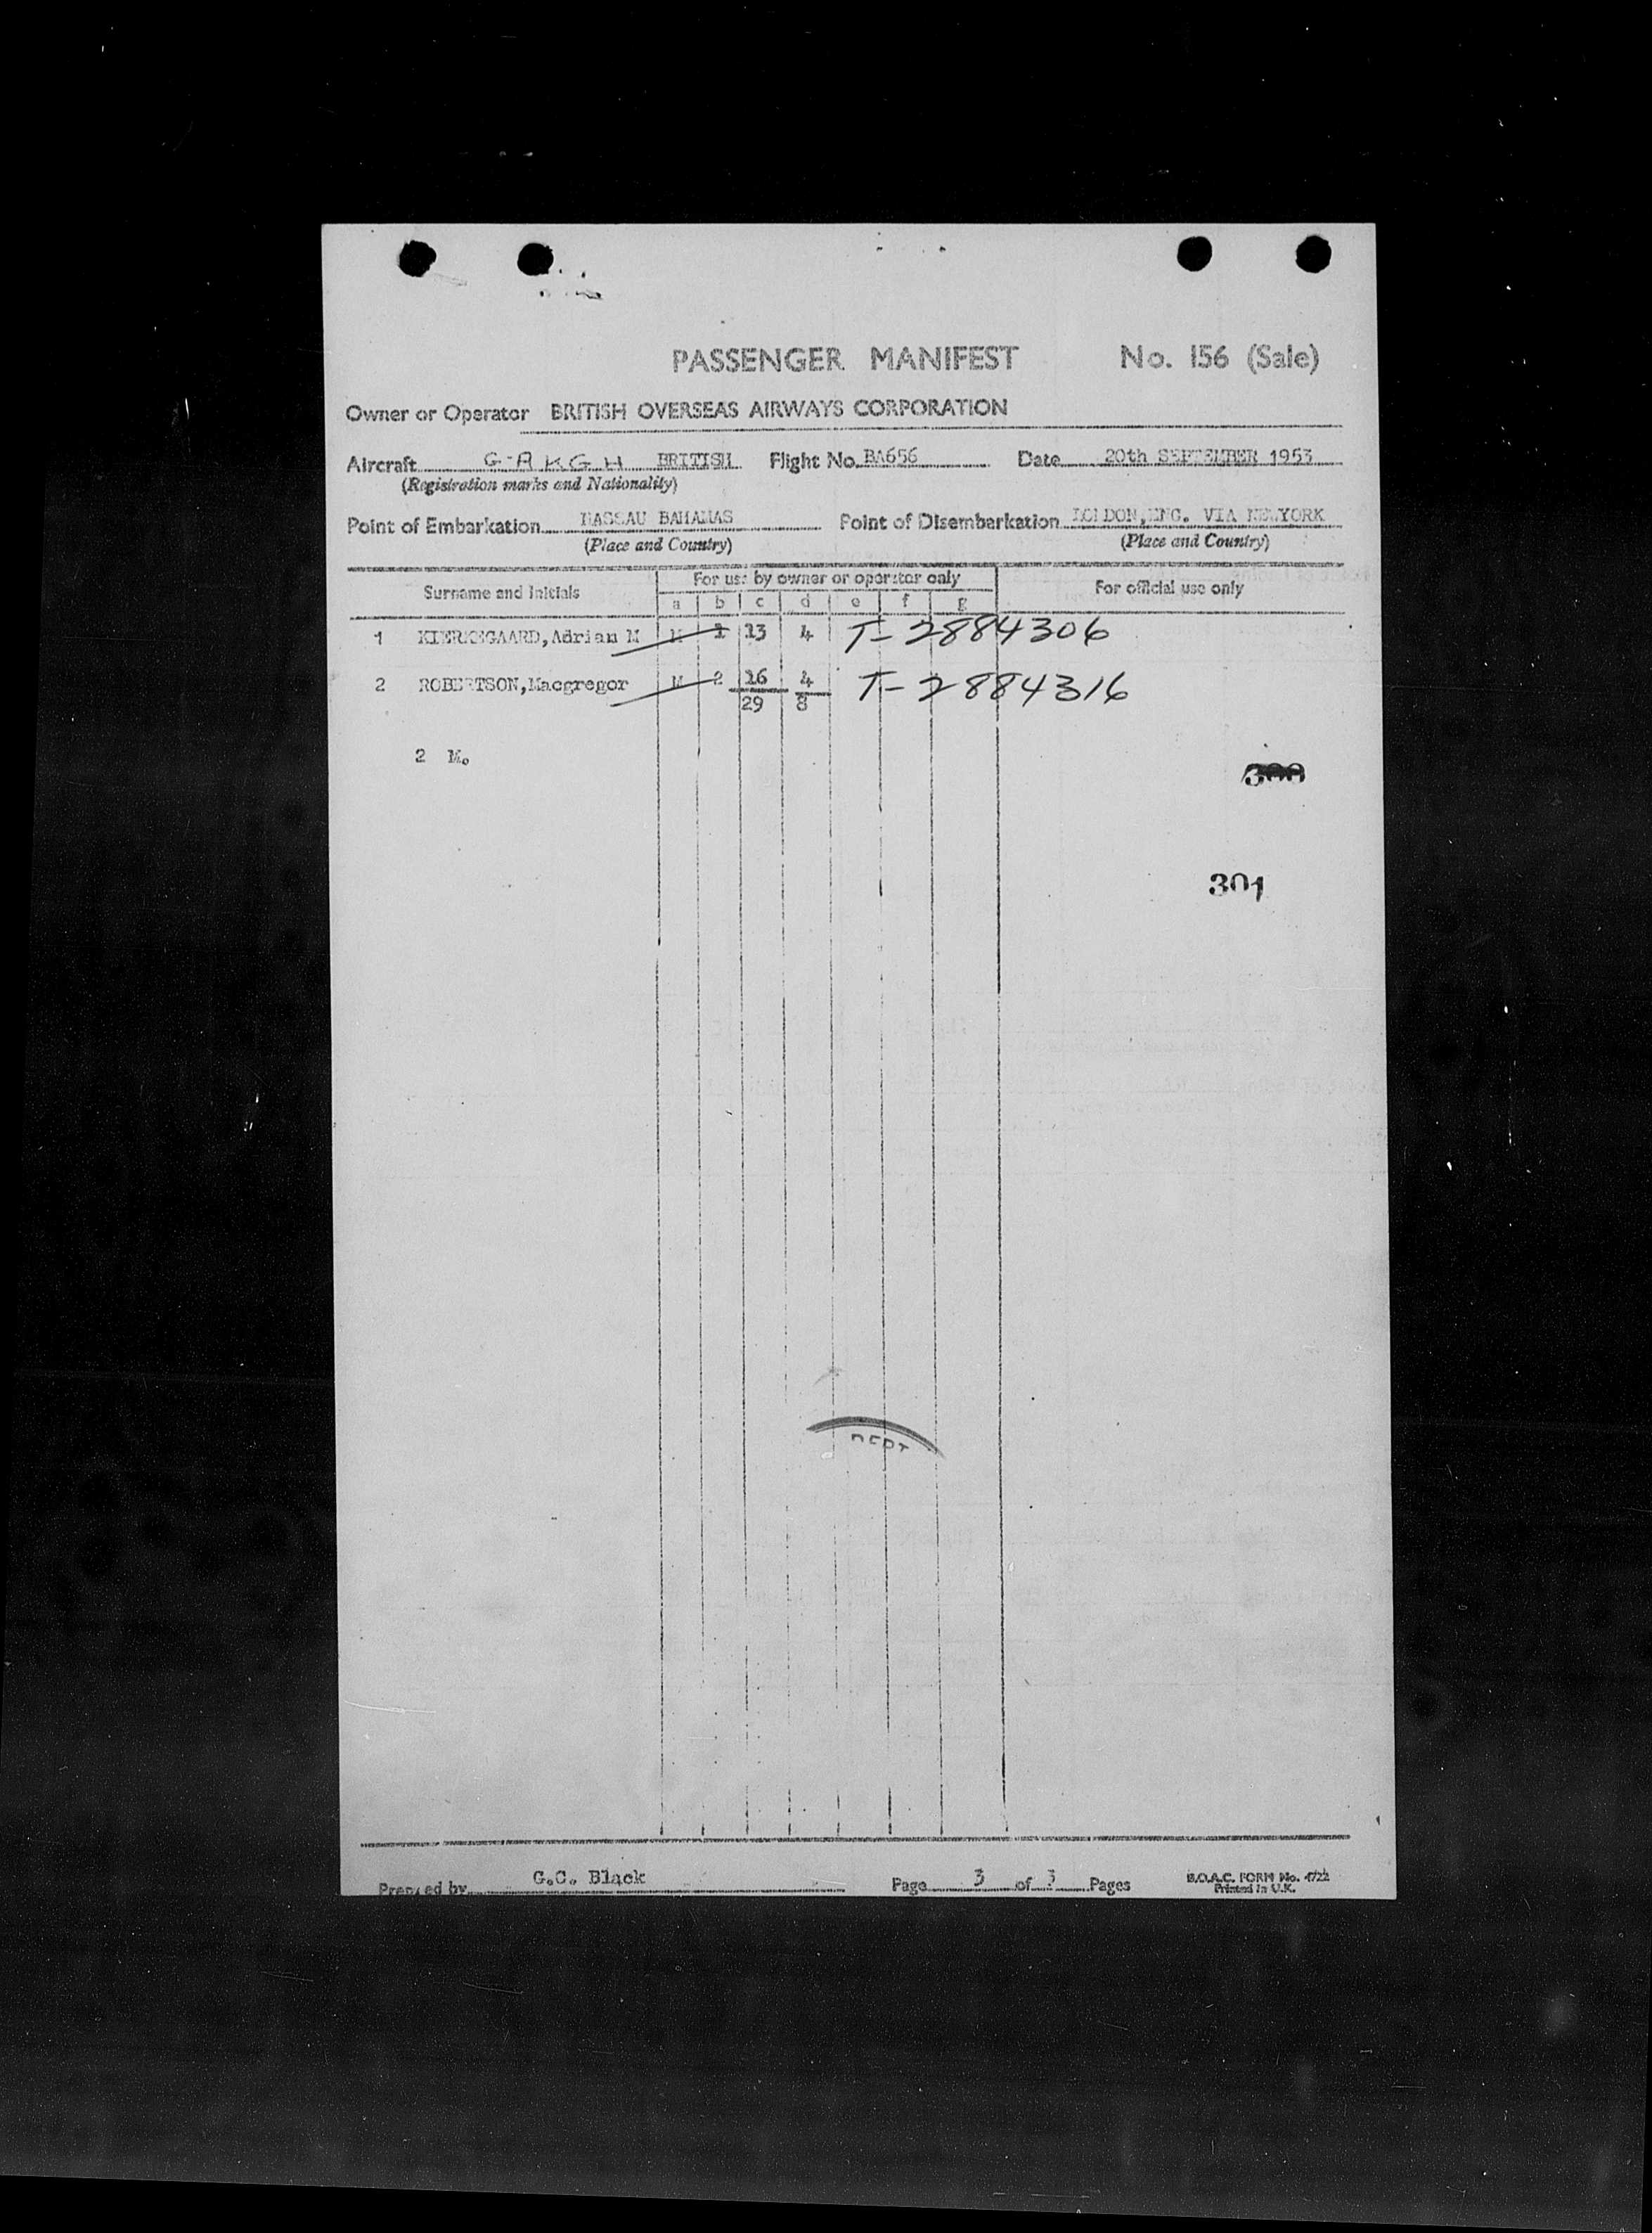 PASSENGER MANIFEST No. 156 (Sale)
Owner or Operator BRITISH OVERSEAS AIRWAYS CORPORATION
Aircraft G-AKGH BRITISH Flight No. BA656 Date 20th SEPTEMBER 1953
(Registration marks and Nationality)
Point of Embarkation NASSAU BAHAMAS Point of Disembarkation LONDON,ENG. VIA NEWYORK
(Place and Country) (Place and Country)
Surname and Initials For use by owner or operator only For official use only
a b c d e f g
1 KIERKEGAARD,Adrian M M 1 13 4 T-2884306
2 ROBERTSON,Macgregor M 2 16 4 T-2884316
29 8
2 M.
300
301
DEPT
Prepared by G.C. Black Page 3 of 3 Pages B.O.A.C. FORM No. 4722
Printed in U.K.